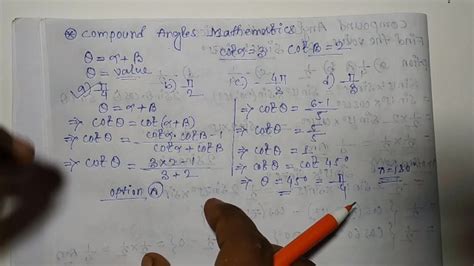 * Compound Angles Mathematics
θ = α + β cotα = 3 cotβ = 2
θ = value
a) π/4 b) -π/2 c) -4π/3 d) -π/8
θ = α + β
⇒ cotθ = cot(α+β)
⇒ cotθ = (cotα cotβ - 1)/(cotα + cotβ)
⇒ cotθ = (3×2-1)/(3+2)
option (A)
⇒ cotθ = (6-1)/5
⇒ cotθ = 5/5
⇒ cotθ = 1
⇒ cotθ = cot 45°
⇒ θ = 45° = π/4
π = 180°